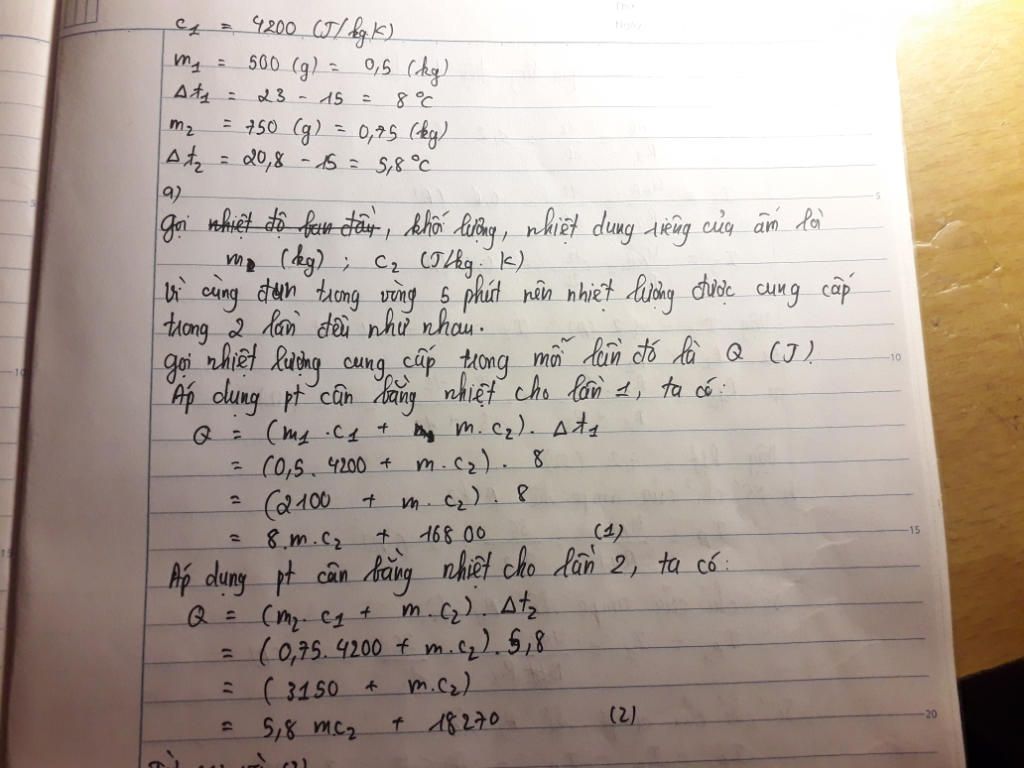 c1 = 4200 (J/kg.K)
m1 = 500 (g) = 0,5 (kg)
Δt1 = 23 - 15 = 8°C
m2 = 750 (g) = 0,75 (kg)
Δt2 = 20,8 - 15 = 5,8°C
a)
gọi nhiệt độ ban đầu, khối lượng, nhiệt dung riêng của ấm là
m (kg) ; c2 (J/kg.K)
Vì cùng đun trong vòng 5 phút nên nhiệt lượng được cung cấp
trong 2 lần đều như nhau.
gọi nhiệt lượng cung cấp trong mỗi lần đó là Q (J)
Áp dụng pt cân bằng nhiệt cho lần 1, ta có:
Q = (m1.c1 + m.c2). Δt1
= (0,5. 4200 + m.c2). 8
= (2100 + m.c2). 8
= 8.m.c2 + 16800 (1)
Áp dụng pt cân bằng nhiệt cho lần 2, ta có:
Q = (m2.c1 + m.c2). Δt2
= (0,75. 4200 + m.c2). 5,8
= (3150 + m.c2)
= 5,8 mc2 + 18270 (2)